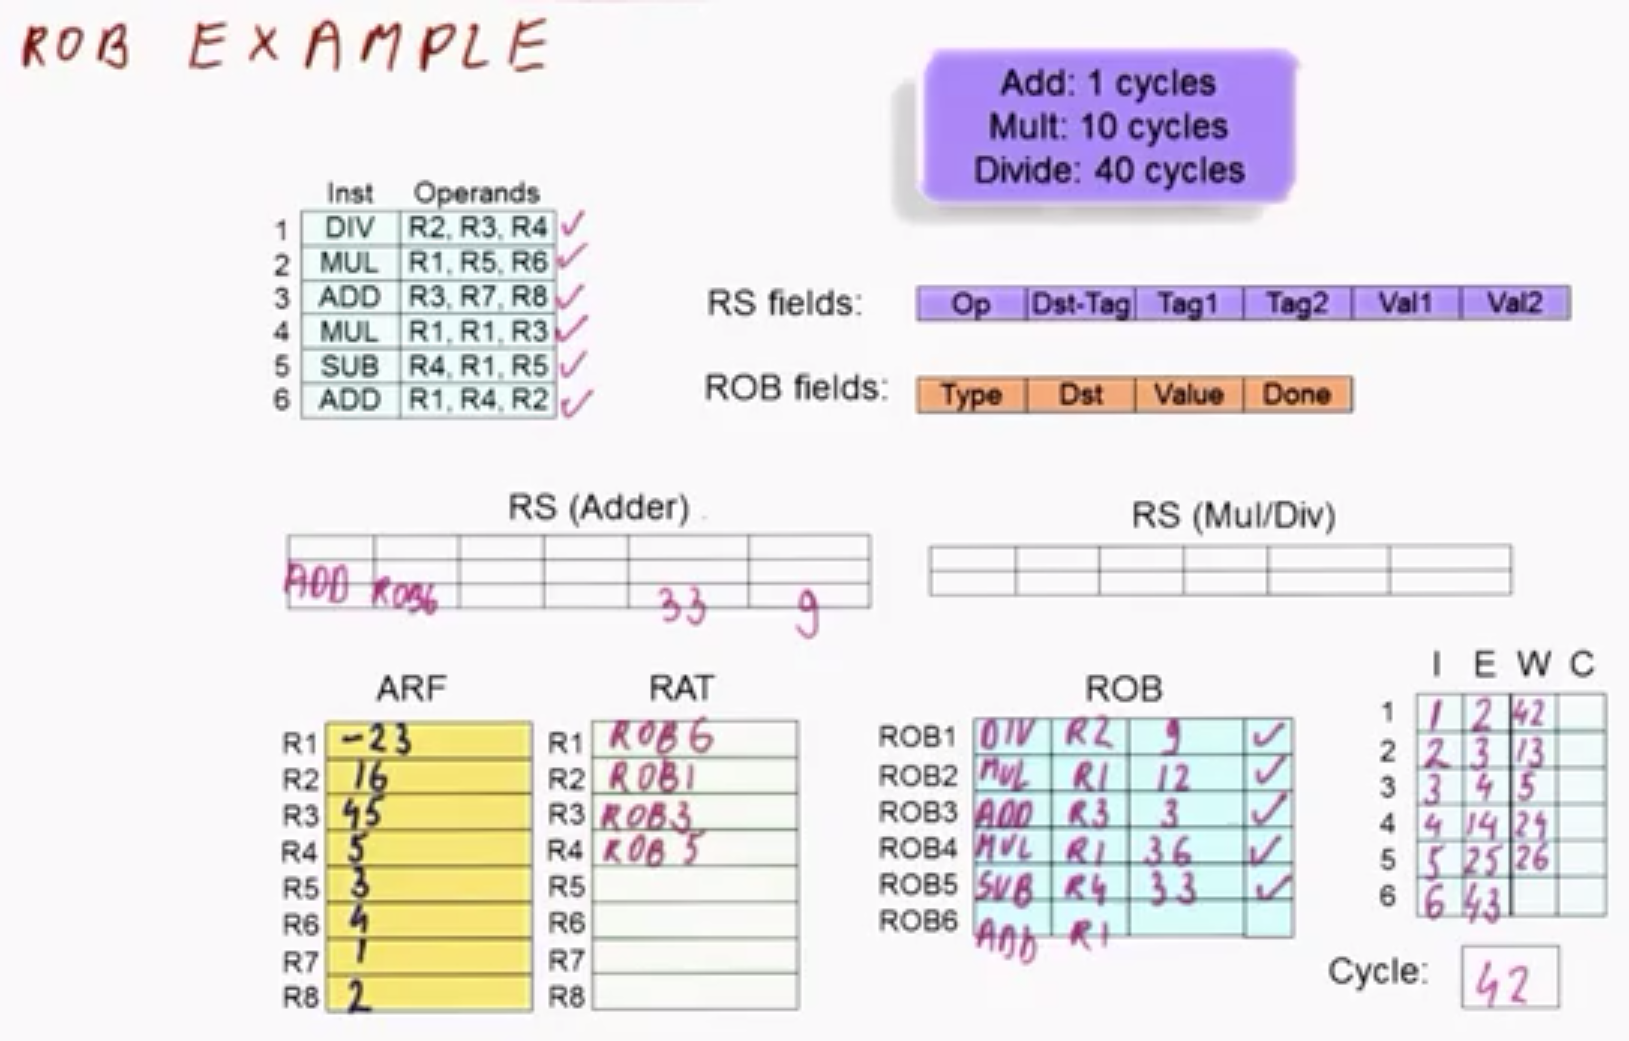 ROB EXAMPLE
Add: 1 cycles
Mult: 10 cycles
Divide: 40 cycles
Inst Operands
1 DIV R2, R3, R4 ✓
2 MUL R1, R5, R6 ✓
3 ADD R3, R7, R8 ✓
4 MUL R1, R1, R3 ✓
5 SUB R4, R1, R5 ✓
6 ADD R1, R4, R2 ✓
RS fields: Op Dst-Tag Tag1 Tag2 Val1 Val2
ROB fields: Type Dst Value Done
RS (Adder)
ADD ROB6 33 9
RS (Mul/Div)
ARF
R1 -23
R2 16
R3 45
R4 5
R5 3
R6 4
R7 1
R8 2
RAT
R1 ROB6
R2 ROB1
R3 ROB3
R4 ROB5
R5
R6
R7
R8
ROB
ROB1 DIV R2 9 ✓
ROB2 MUL R1 12 ✓
ROB3 ADD R3 3 ✓
ROB4 MUL R1 36 ✓
ROB5 SUB R4 33 ✓
ROB6 ADD R1
I E W C
1 1 2 42
2 2 3 13
3 3 4 5
4 4 14 24
5 5 25 26
6 6 43
Cycle: 42